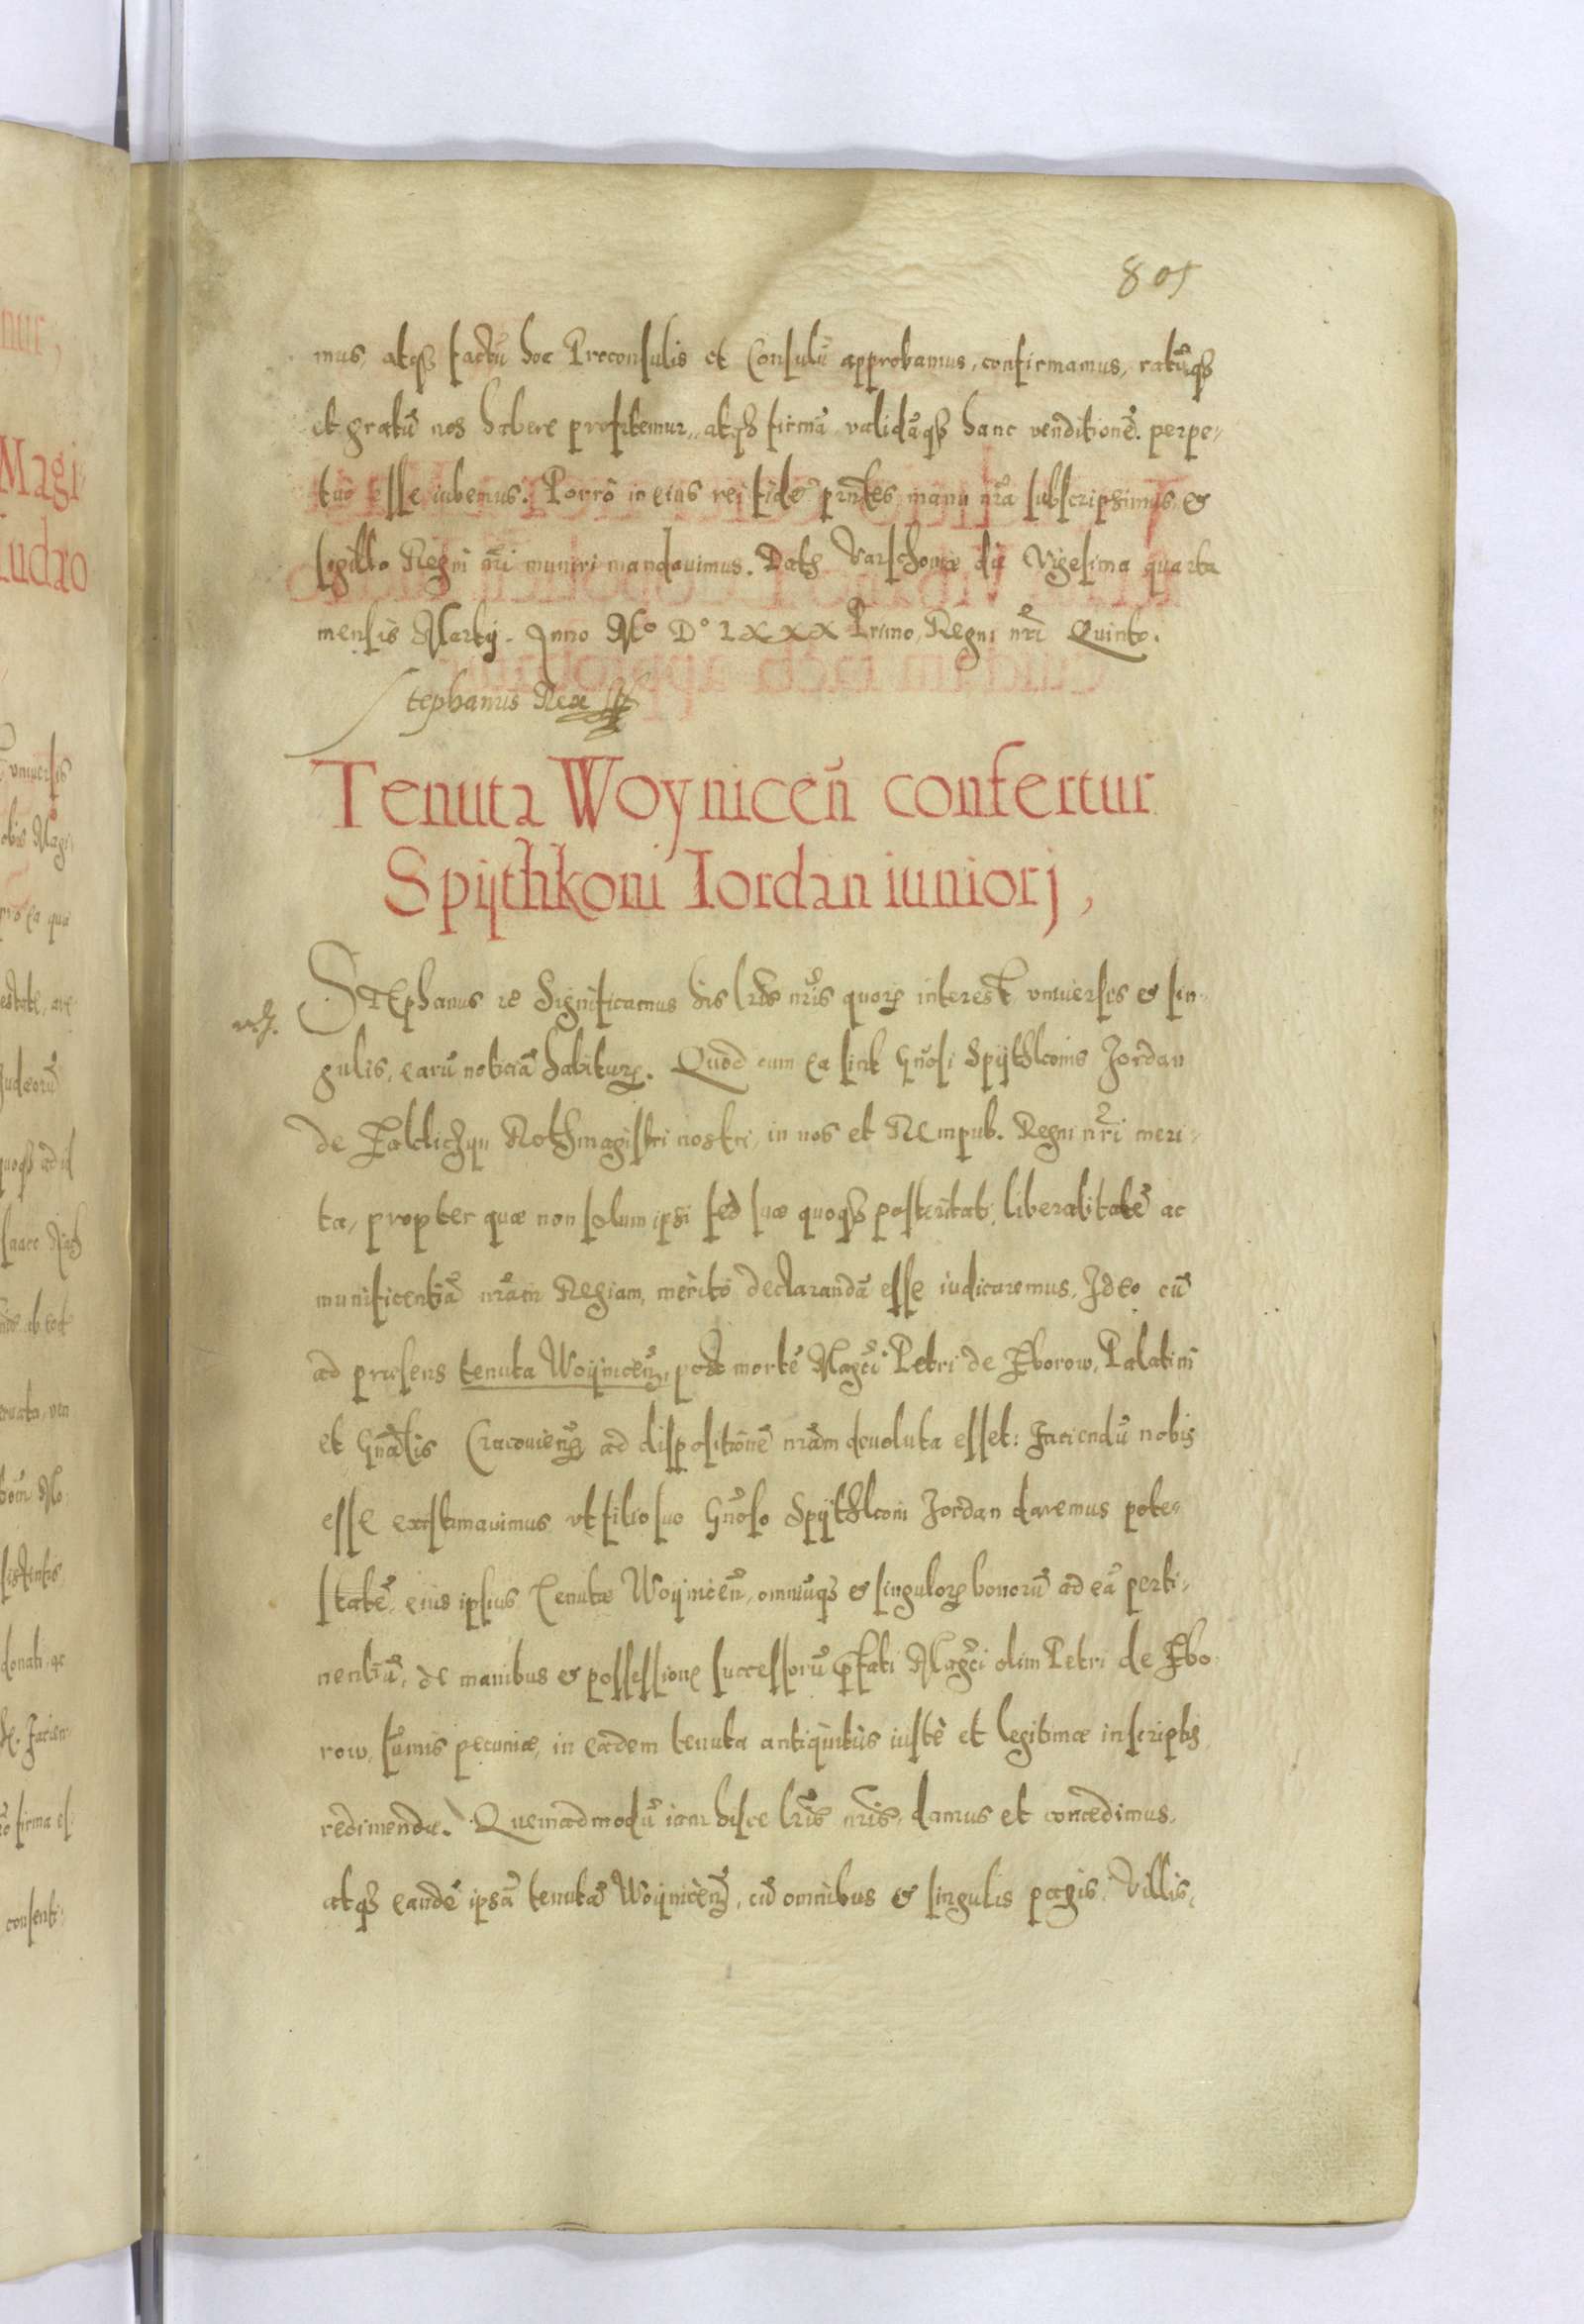 805
mus, atqȝ factū hoc Preconsulis et Consulū approbamus, confirmamus, ratūqȝ
et gratū nos habere profitemur, atqȝ firmā validāqȝ hanc venditionē perpe-
tuo esse iubemus. Porrò in eius rei fidē pntes manu nra subscripsimus, &
sigillo Regni nri muniri mandavimus. Datȝ Varschoviæ die Vigesima quarta
mensis Martij. Anno Mº Dº LXXX Primo, Regni nri Quinto.
Stephanus Rex
Tenuta Woynicen̄ confertur
Spijthkoni Iordan iuniorj,
STEphanus &c Significamus his lris nris quorȝ interest vniuersis & sin-
gulis, earū noticiā habiturȝ. Quod cum ea sint Gnosi Spijthkonis Jordan
de Zakliczyn Rothmagistri nostri, in nos et Rempub. Regni nri meri-
ta, propter quæ non solum ipsi sed suæ quoqȝ posteritati, liberalitatē ac
munificentiā nram Regiam, meritò declarandā esse iudicaremus. Ideo cū
ad præsens tenuta Woijnicenȝ, post mortē Magci Petri de Zborow, Palatini
et Gnalis Cracoviensȝ ad dispositionē nram devoluta esset: Faciendū nobis
esse existimavimus vt filio suo Gnoso Spijthkoni Jordan daremus pote-
statē, eius ipsius Tenutæ Woijnicen̄, omniūqȝ & singulorȝ bonorū ad eā perti-
nentiū, de manibus & possessione successorū pfati Magci olim Petri de Zbo-
row, sumis pecuniæ, in eadem tenuta antiquitùs iustè et legitimæ inscriptis
redimendæ. Quemadmodū iam hisce lris nris, damus et concedimus,
atqȝ eandē ipsā tenutā Woijnicenȝ, cū omnibus & singulis pagis, Villis,